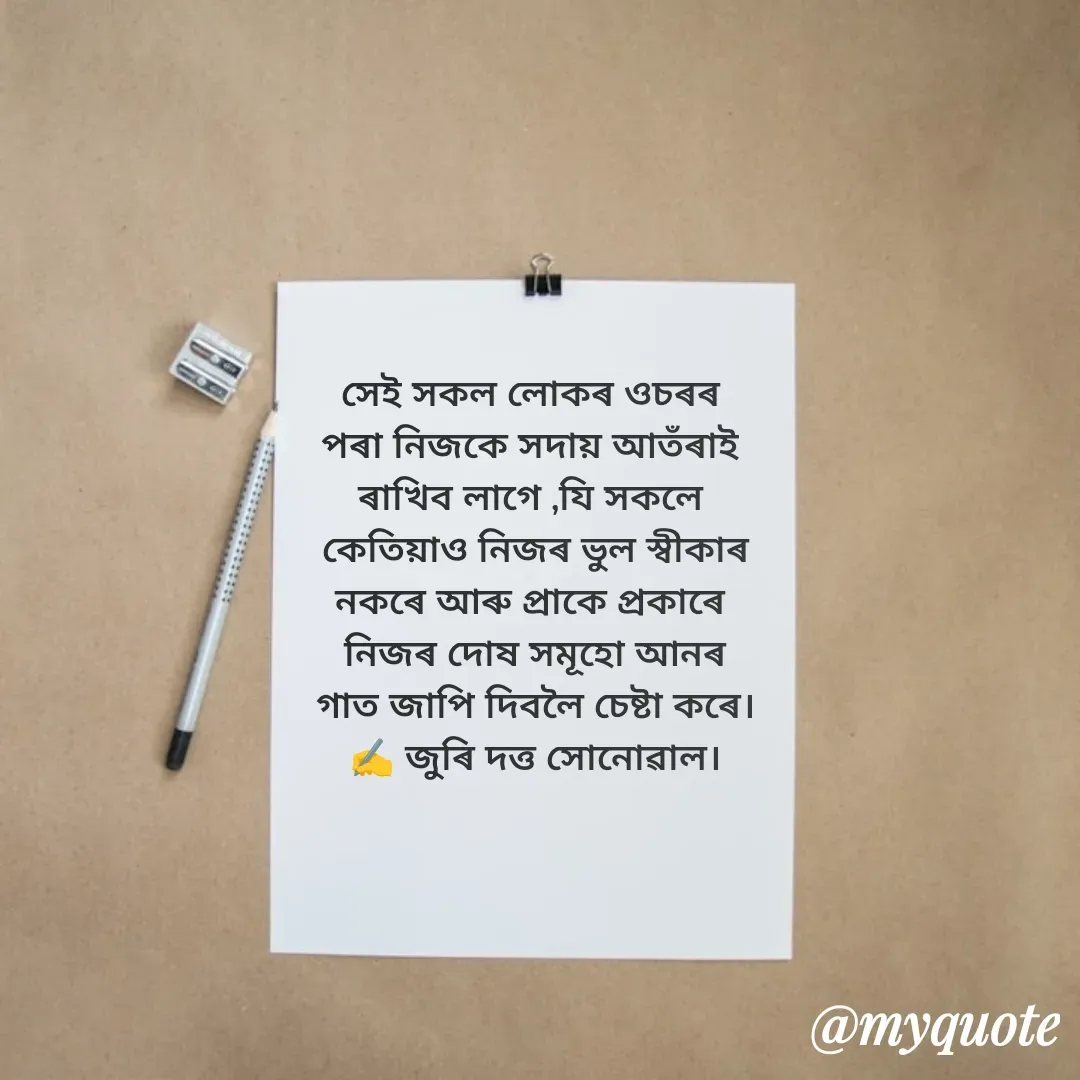 সেই সকল লোকৰ ওচৰৰ
পৰা নিজকে সদায় আতঁৰাই
ৰাখিব লাগে ,যি সকলে
কেতিয়াও নিজৰ ভুল স্বীকাৰ
নকৰে আৰু প্ৰাকে প্ৰকাৰে
নিজৰ দোষ সমূহো আনৰ
গাত জাপি দিবলৈ চেষ্টা কৰে।
✍️ জুৰি দত্ত সোনোৱাল।
@myquote